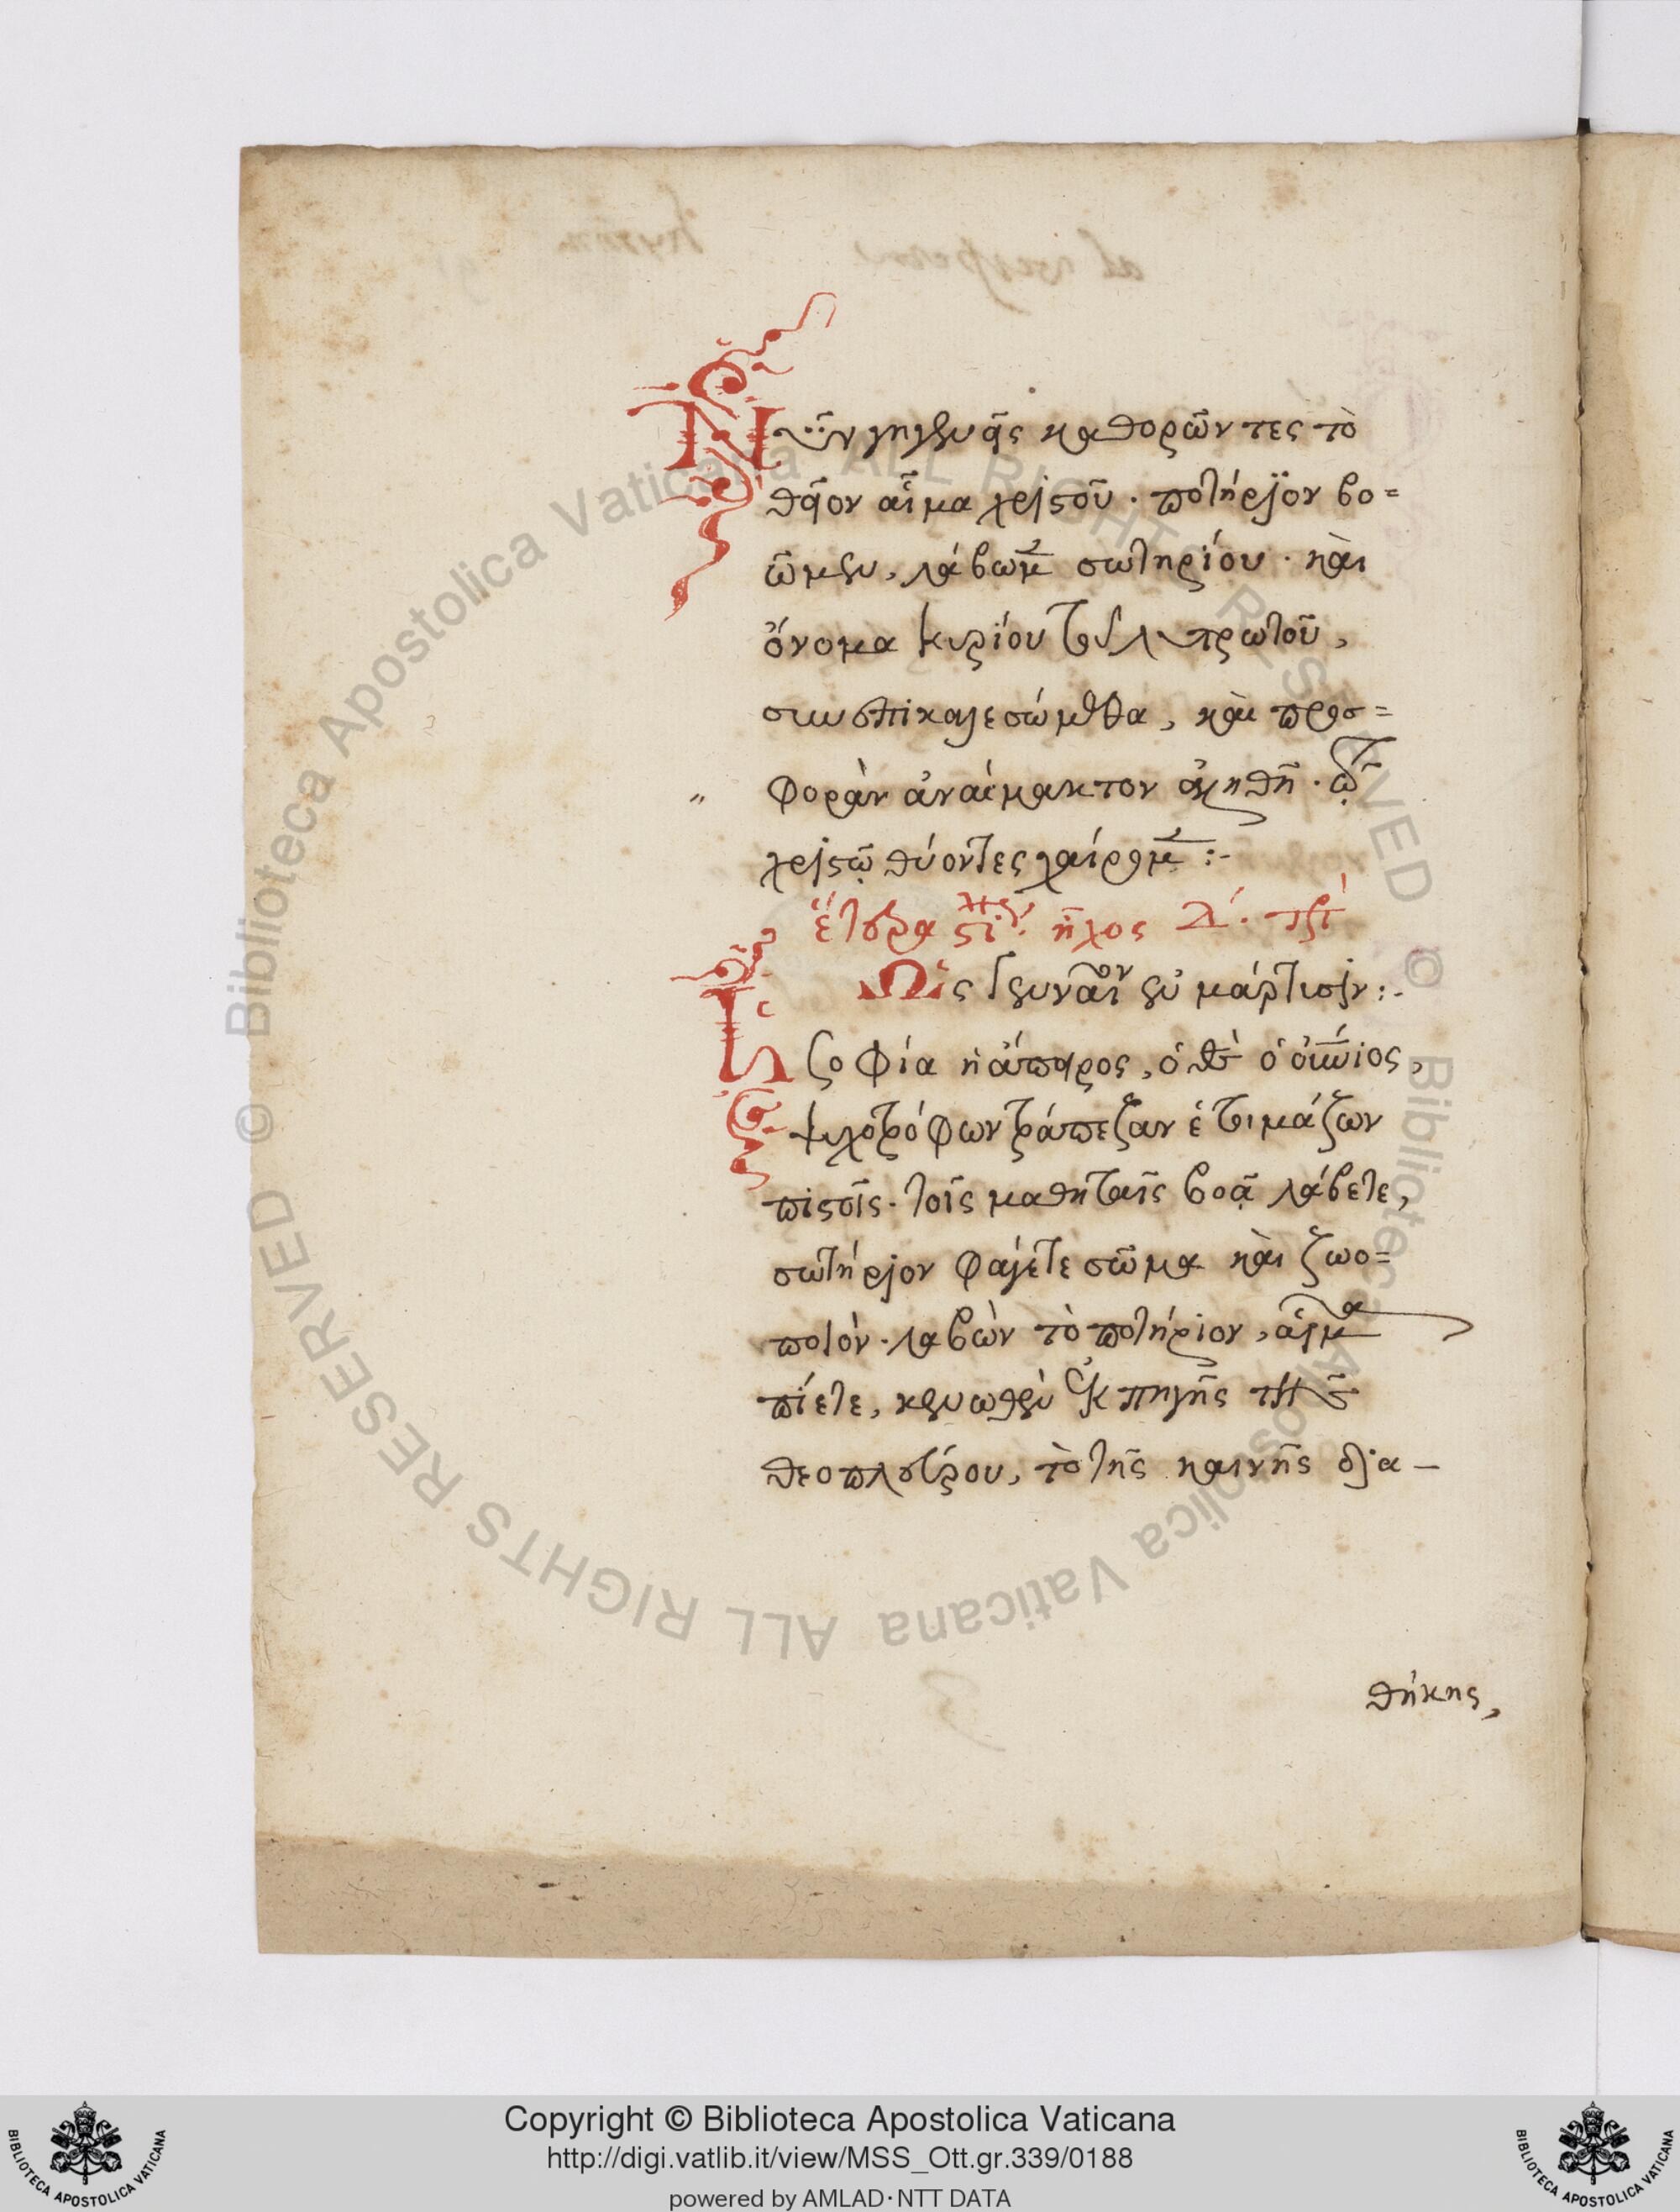 Νῦν γηγενεῖς καθορῶντες τὸ
θεῖον αἷμα χριστοῦ· ποτήριον βο=
ῶμεν, λάβωμεν σωτηρίου· καὶ
ὄνομα κυρίου τοῦ λυτρωτοῦ,
συνεπικαλεσώμεθα, καὶ προσ=
φορὰν ἀναίμακτον ἀληθῆ· τῷ
χριστῷ θύοντες χαίρομεν:-
ἕτερα ἦχος Δ΄.
Ὡς γενναῖον ἐν μάρτυσιν:-
Σοφία ἡ ἄπειρος, ὁ θεὸς ὁ αἰώνιος,
ψυχοτρόφων τράπεζαν ἑτοιμάζων
πιστοῖς· τοῖς μαθηταῖς βοᾷ λάβετε,
σωτήριον φάγετε σῶμα καὶ ζωο=
ποιόν· λαβὼν τὸ ποτήριον, αἷμα
πίετε, κενωθὲν ἐκ πηγῆς τῆς
θεοπλεύρου, τὸ τῆς καινῆς δια-
θήκης,
© Biblioteca Apostolica Vaticana ALL RIGHTS RESERVED © Biblioteca Apostolica Vaticana ALL RIGHTS RESERVED
Copyright © Biblioteca Apostolica Vaticana
http://digi.vatlib.it/view/MSS_Ott.gr.339/0188
powered by AMLAD·NTT DATA
BIBLIOTECA APOSTOLICA VATICANA
BIBLIOTECA APOSTOLICA VATICANA